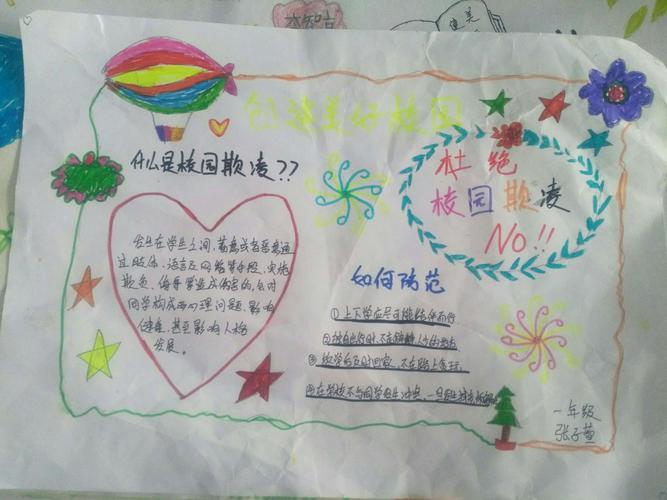 创建美好校园
什么是校园欺凌??
杜绝
校园欺凌
NO!!
发生在学生之间,蓄意或者恶意通
过肢体、语言及网络等手段,实施
欺负、侮辱
造成伤害的,会对
同学构成心理问题,影响
健康,甚至影响人格
发展。
如何防范
①上下学应尽可能结伴而行
③放学后及时回家,不在路上
④在学校不与同学发生冲突,一旦发生
一年级
张子萱